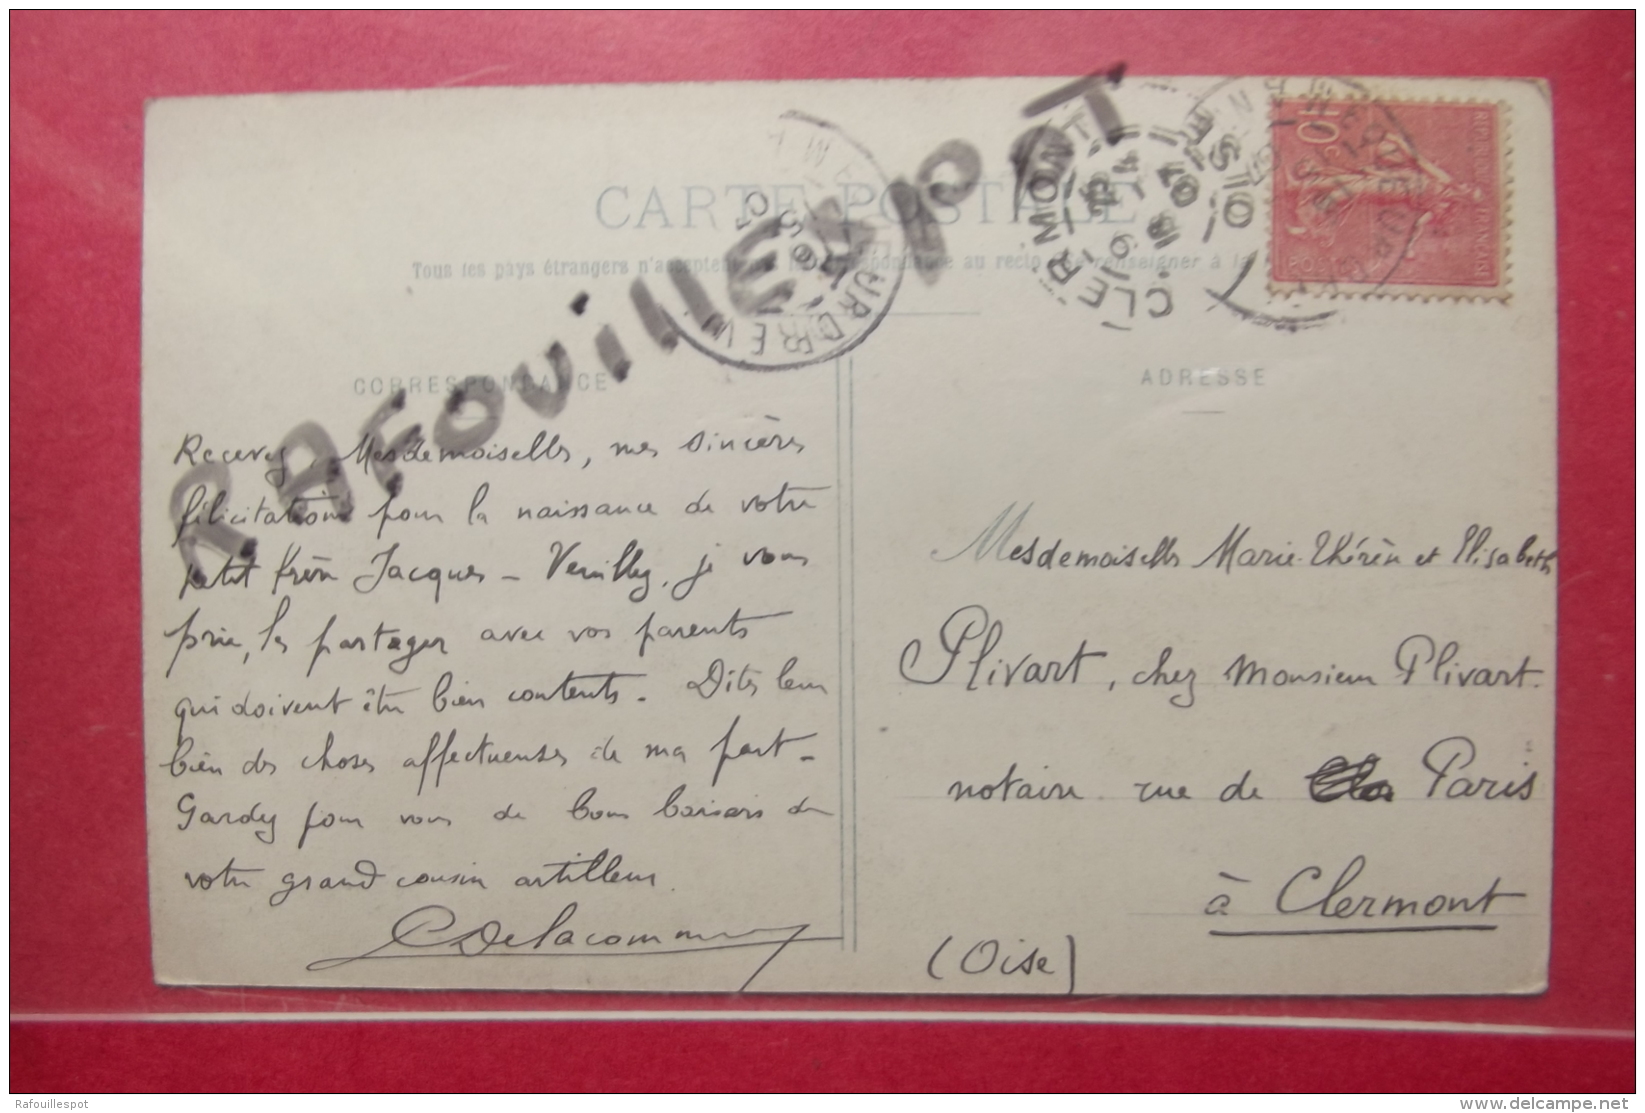 CARTE POSTALE
Tous les pays étrangers n'acceptent pas la correspondance au recto. Se renseigner à la
RAFOUillESpoT
CLERMONT
OISE
10c
POSTES
CORRESPONDANCE
Recevez, Mesdemoiselles, mes sincères
félicitations pour la naissance de votre
petit frère Jacques - Veuillez, je vous
prie, les partager avec vos parents
qui doivent être bien contents. Dites leur
bien des choses affectueuses de ma part -
Gardez pour vous de bons baisers de
votre grand cousin artilleur.
Delacomm
ADRESSE
Mesdemoiselles Marie-Thérèse et Elisabeth
Plivart, chez Monsieur Plivart.
notaire rue de Paris
à Clermont
(Oise)
Rafouillespot
www.delcampe.net